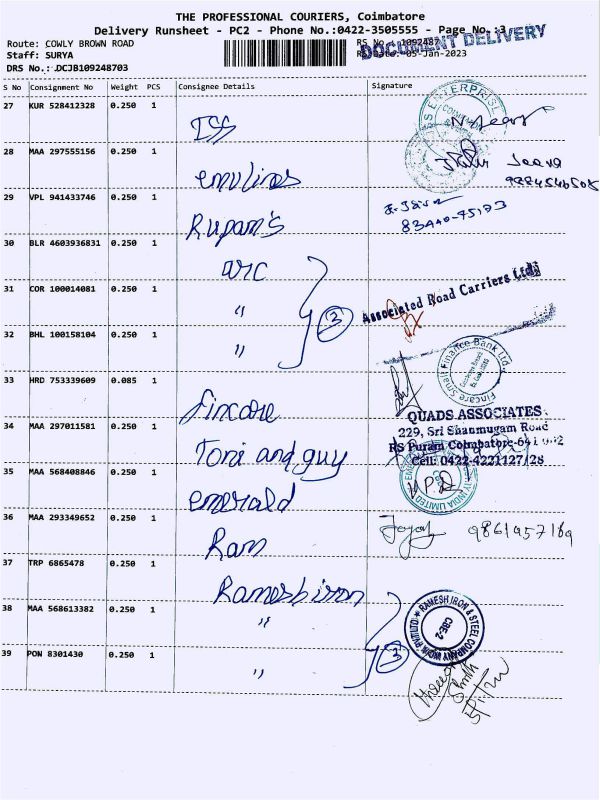 THE PROFESSIONAL COURIERS, Coimbatore
Delivery Runsheet - PC2 - Phone No.:0422-3505555 - Page No.:3
DOCUMENT DELIVERY
Route: COWLY BROWN ROAD
RS No :1092487
Staff: SURYA
RS Date: 05-Jan-2023
DRS No.: DCJB109248703
S No Consignment No Weight PCS Consignee Details Signature
27 KUR 528412328 0.250 1 ISS
28 MAA 297555156 0.250 1 envulines
29 VPL 941433746 0.250 1 Rupam's
30 BLR 4603936831 0.250 1 arc
31 COR 100014081 0.250 1 "
3
Associated Road Carriers Ltd
32 BHL 100158104 0.250 1 "
Fincare Small Finance Bank Ltd.
33 HRD 753339609 0.085 1 fincare
QUADS ASSOCIATES
229, Sri Shanmugam Road
34 MAA 297011581 0.250 1 Toni and guy
RS Puram Coimbatore-641 002
Cell: 0422-4221127/28
35 MAA 568408846 0.250 1 emerald
36 MAA 293349652 0.250 1 Ram
37 TRP 6865478 0.250 1 Ramesh iron
38 MAA 568613382 0.250 1 "
RAMESH IRON & STEEL COMPANY
CBE-2
39 PON 8301430 0.250 1 "
3